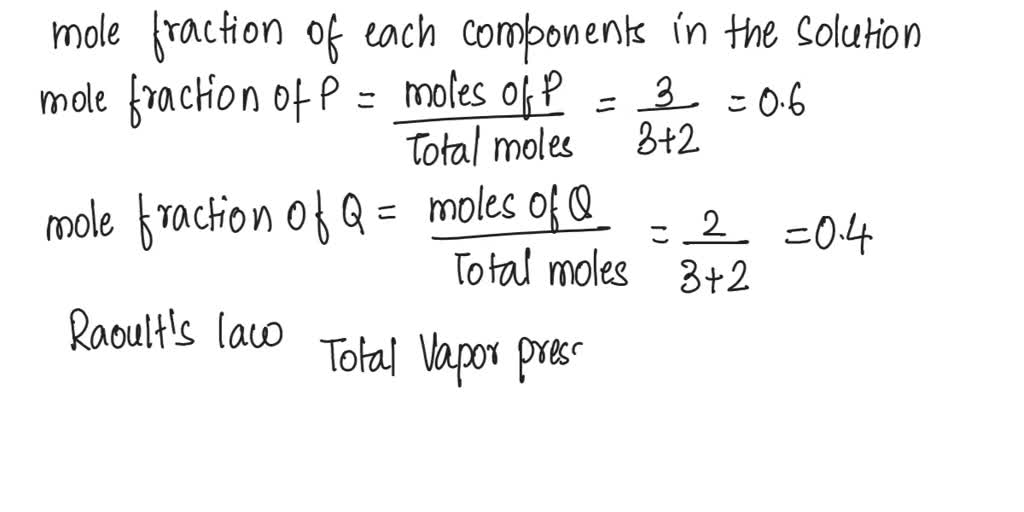 mole fraction of each components in the solution
mole fraction of P = moles of P / Total moles = 3 / 3+2 = 0.6
mole fraction of Q = moles of Q / Total moles = 2 / 3+2 = 0.4
Raoult's law
Total Vapor pres